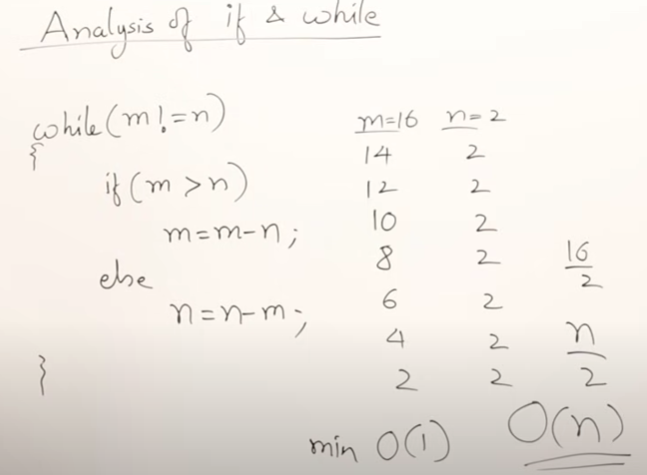 Analysis of if & while
while(m!=n)
{
if(m>n)
m=m-n;
else
n=n-m;
}
m=16 n=2
14 2
12 2
10 2
8 2
6 2
4 2
2 2
16
2
n
2
min O(1)
O(n)